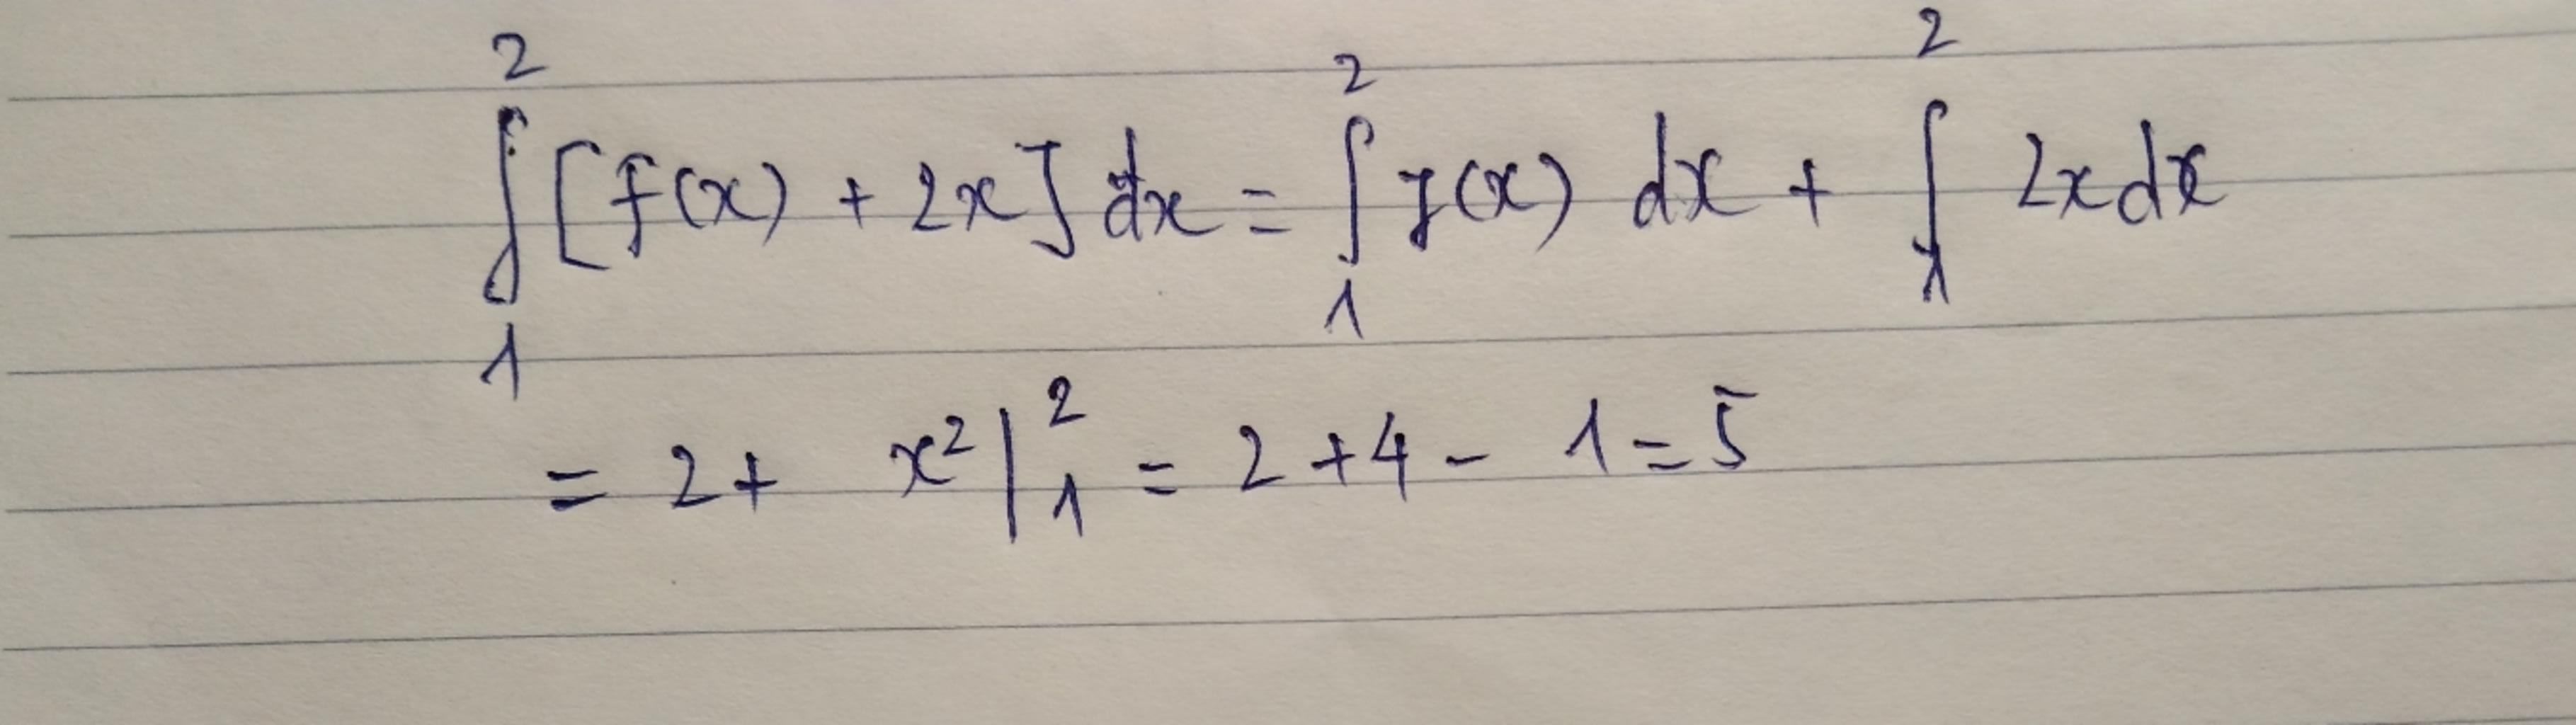 ∫₁² [f(x) + 2x] dx = ∫₁² f(x) dx + ∫₁² 2x dx
= 2 + x² |₁² = 2 + 4 - 1 = 5